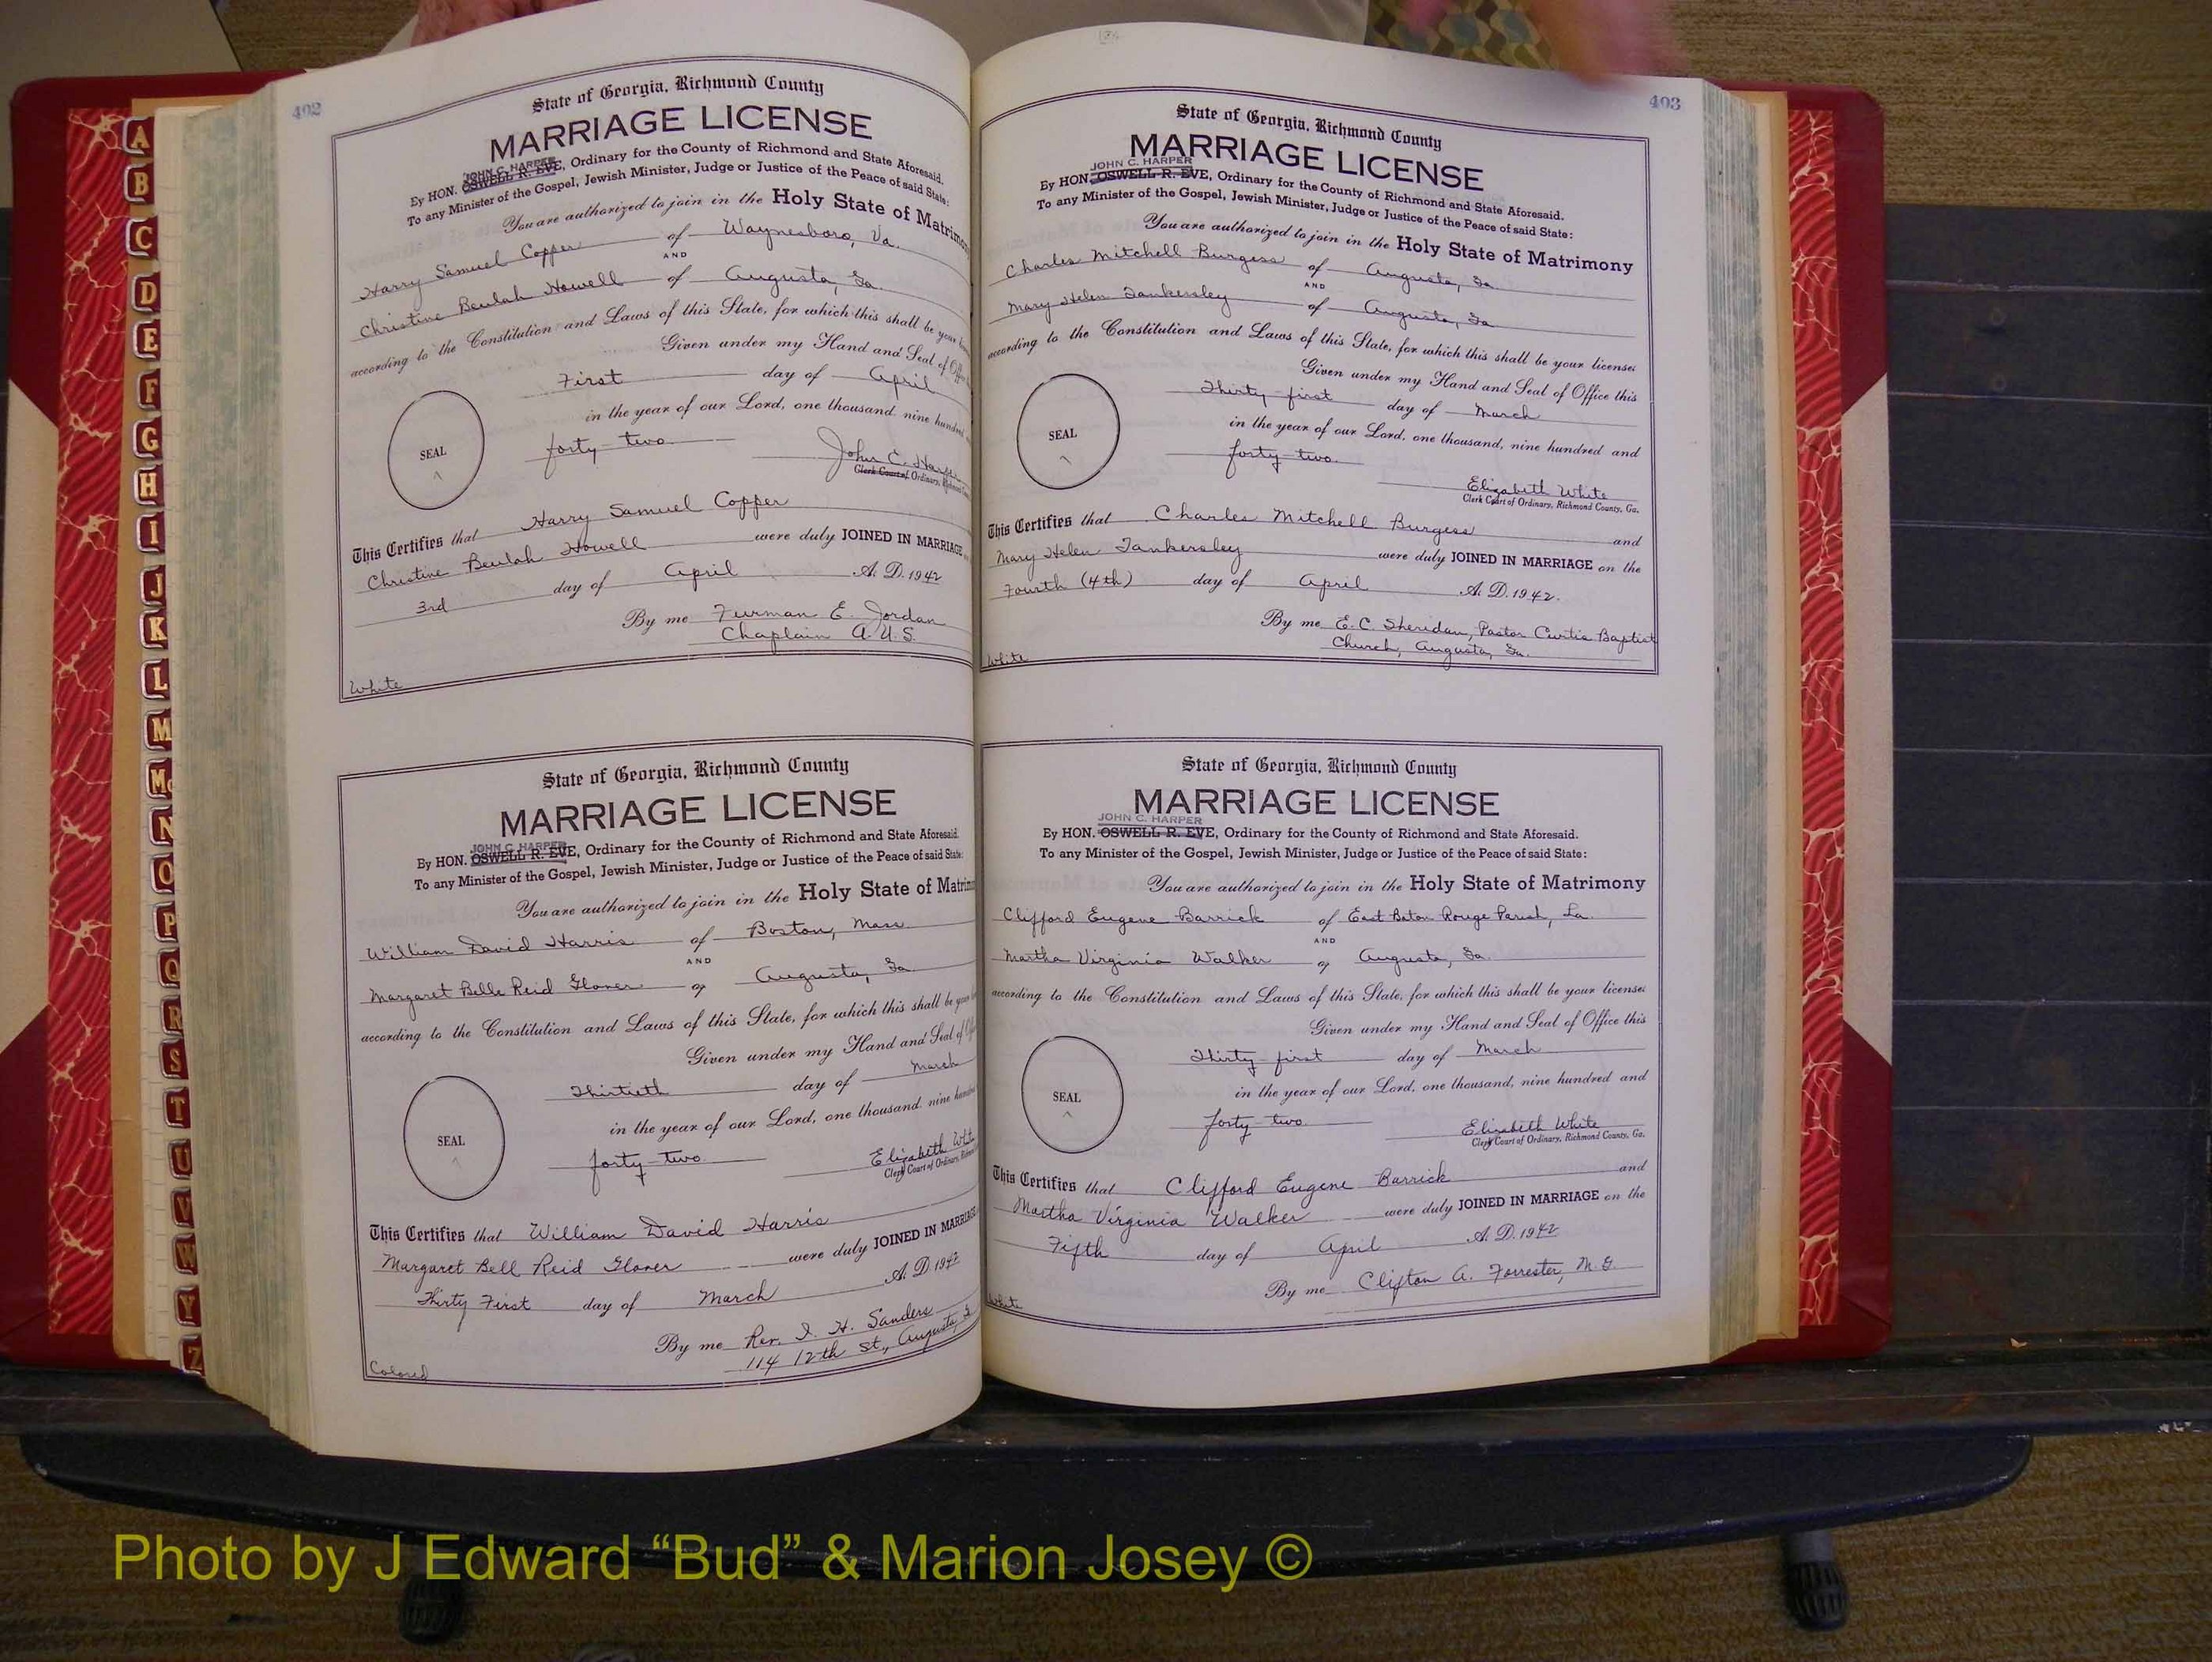 402
State of Georgia, Richmond County
MARRIAGE LICENSE
JOHN C. HARPER
By HON. OSWELL R. EVE, Ordinary for the County of Richmond and State Aforesaid.
To any Minister of the Gospel, Jewish Minister, Judge or Justice of the Peace of said State:
You are authorized to join in the Holy State of Matrimony
Harry Samuel Copper of Waynesboro, Va.
AND
Christine Beulah Howell of Augusta, Ga.
according to the Constitution and Laws of this State, for which this shall be your
Given under my Hand and Seal of
First day of April
in the year of our Lord, one thousand nine hundred
forty-two
SEAL
John C. Harper
Clerk Court of Ordinary,
This Certifies that Harry Samuel Copper
Christine Beulah Howell were duly JOINED IN MARRIAGE
3rd day of April A. D. 1942
By me Furman E. Jordan
Chaplain A.U.S.
White
State of Georgia, Richmond County
MARRIAGE LICENSE
JOHN C. HARPER
By HON. OSWELL R. EVE, Ordinary for the County of Richmond and State Aforesaid.
To any Minister of the Gospel, Jewish Minister, Judge or Justice of the Peace of said State:
You are authorized to join in the Holy State of
William David Harris of Boston, Mass.
AND
Margaret Belle Reid Glover of Augusta, Ga.
according to the Constitution and Laws of this State, for which this shall be your
Given under my Hand and Seal of
Thirtieth day of March
in the year of our Lord, one thousand nine
forty-two
SEAL
Elizabeth
Clerk Court of Ordinary,
This Certifies that William David Harris
Margaret Bell Reid Glover were duly JOINED IN MARRIAGE
Thirty First day of March A. D. 1942
By me Rev. I. H. Sanders
114 12th St., Augusta,
Colored
403
State of Georgia, Richmond County
MARRIAGE LICENSE
JOHN C. HARPER
By HON. OSWELL R. EVE, Ordinary for the County of Richmond and State Aforesaid.
To any Minister of the Gospel, Jewish Minister, Judge or Justice of the Peace of said State:
You are authorized to join in the Holy State of Matrimony
Charles Mitchell Burgess of Augusta, Ga.
AND
Mary Helen Tankersley of Augusta, Ga.
according to the Constitution and Laws of this State, for which this shall be your license:
Given under my Hand and Seal of Office this
Thirty-first day of March
in the year of our Lord, one thousand, nine hundred and
forty-two.
SEAL
Elizabeth White
Clerk Court of Ordinary, Richmond County, Ga.
This Certifies that Charles Mitchell Burgess and
Mary Helen Tankersley were duly JOINED IN MARRIAGE on the
Fourth (4th) day of April A. D. 1942.
By me E. C. Sheridan, Pastor Curtis Baptist
Church, Augusta, Ga.
White
State of Georgia, Richmond County
MARRIAGE LICENSE
JOHN C. HARPER
By HON. OSWELL R. EVE, Ordinary for the County of Richmond and State Aforesaid.
To any Minister of the Gospel, Jewish Minister, Judge or Justice of the Peace of said State:
You are authorized to join in the Holy State of Matrimony
Clifford Eugene Barrick of East Baton Rouge Parish, La.
AND
Martha Virginia Walker of Augusta, Ga.
according to the Constitution and Laws of this State, for which this shall be your license:
Given under my Hand and Seal of Office this
Thirty-first day of March
in the year of our Lord, one thousand, nine hundred and
forty-two.
SEAL
Elizabeth White
Clerk Court of Ordinary, Richmond County, Ga.
This Certifies that Clifford Eugene Barrick and
Martha Virginia Walker were duly JOINED IN MARRIAGE on the
Fifth day of April A. D. 1942
By me Clifton A. Forrester, M. G.
White
A
B
C
D
E
F
G
H
I
J
K
L
M
Mc
N
O
P
Q
R
S
T
U
V
W
Y
Z
Photo by J Edward “Bud” & Marion Josey ©